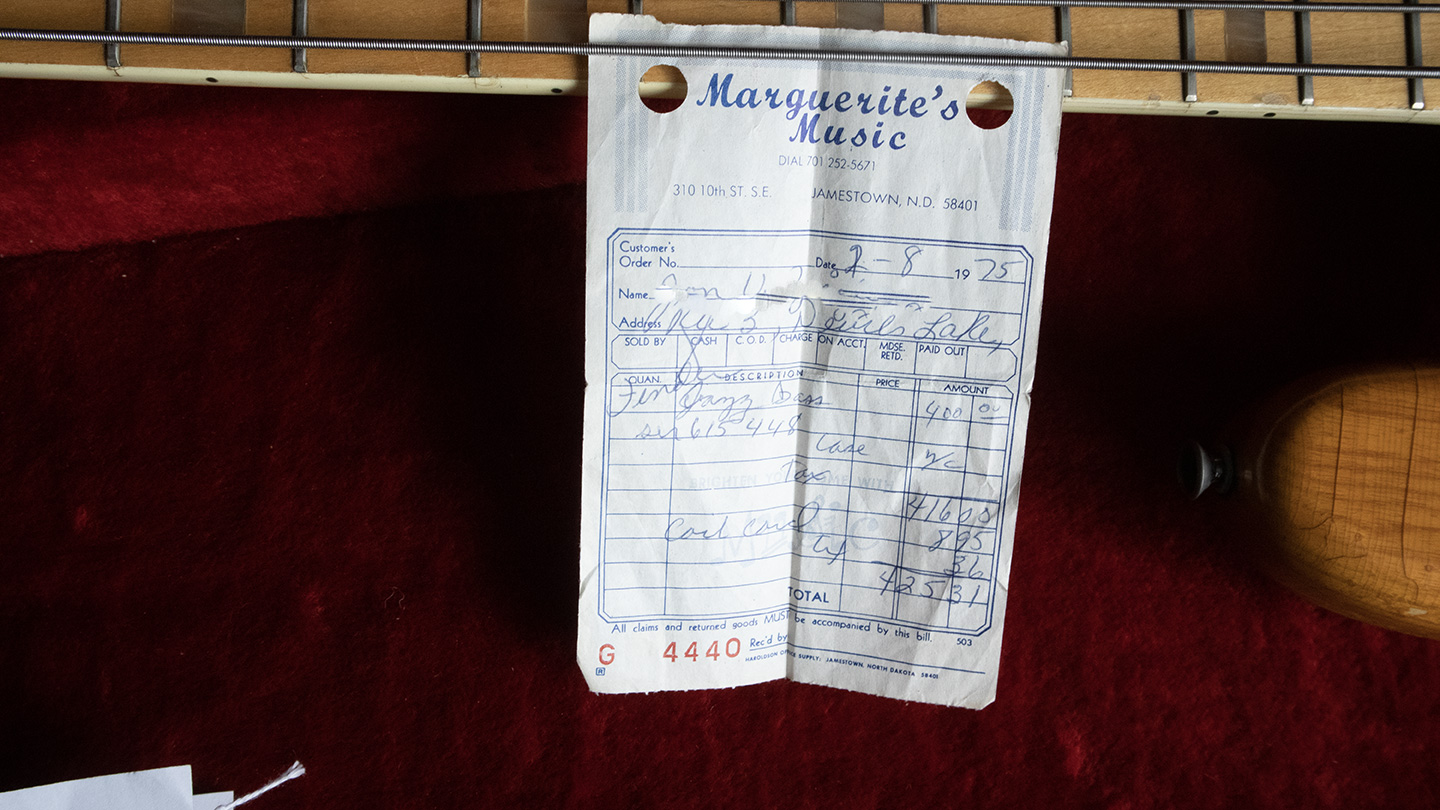 Marguerite's
Music
DIAL 701 252-5671
310 10th ST. S.E. JAMESTOWN, N.D. 58401
Customer's
Order No. Date 2-8 19 75
Name
Address Lake,
SOLD BY CASH C.O.D. CHARGE ON ACCT. MDSE. RETD. PAID OUT
QUAN. DESCRIPTION PRICE AMOUNT
Fender Jazz Bass 400 00
ser 615448
Case N/C
Tax
416 00
Coil cord 8 95
tx 36
TOTAL 425 31
All claims and returned goods MUST be accompanied by this bill. 503
G 4440 Rec'd by
HAROLDSON OFFICE SUPPLY, JAMESTOWN, NORTH DAKOTA 58401